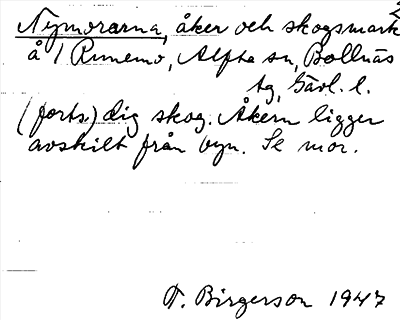 Nymorarna, åker och skogsmark 2
å 1 Runemo, Alfta sn, Bollnäs
tg, Gävl. l.
(forts) dig skog. Åkern ligger
avskilt från byn. Se mor.
T. Birgerson 1947